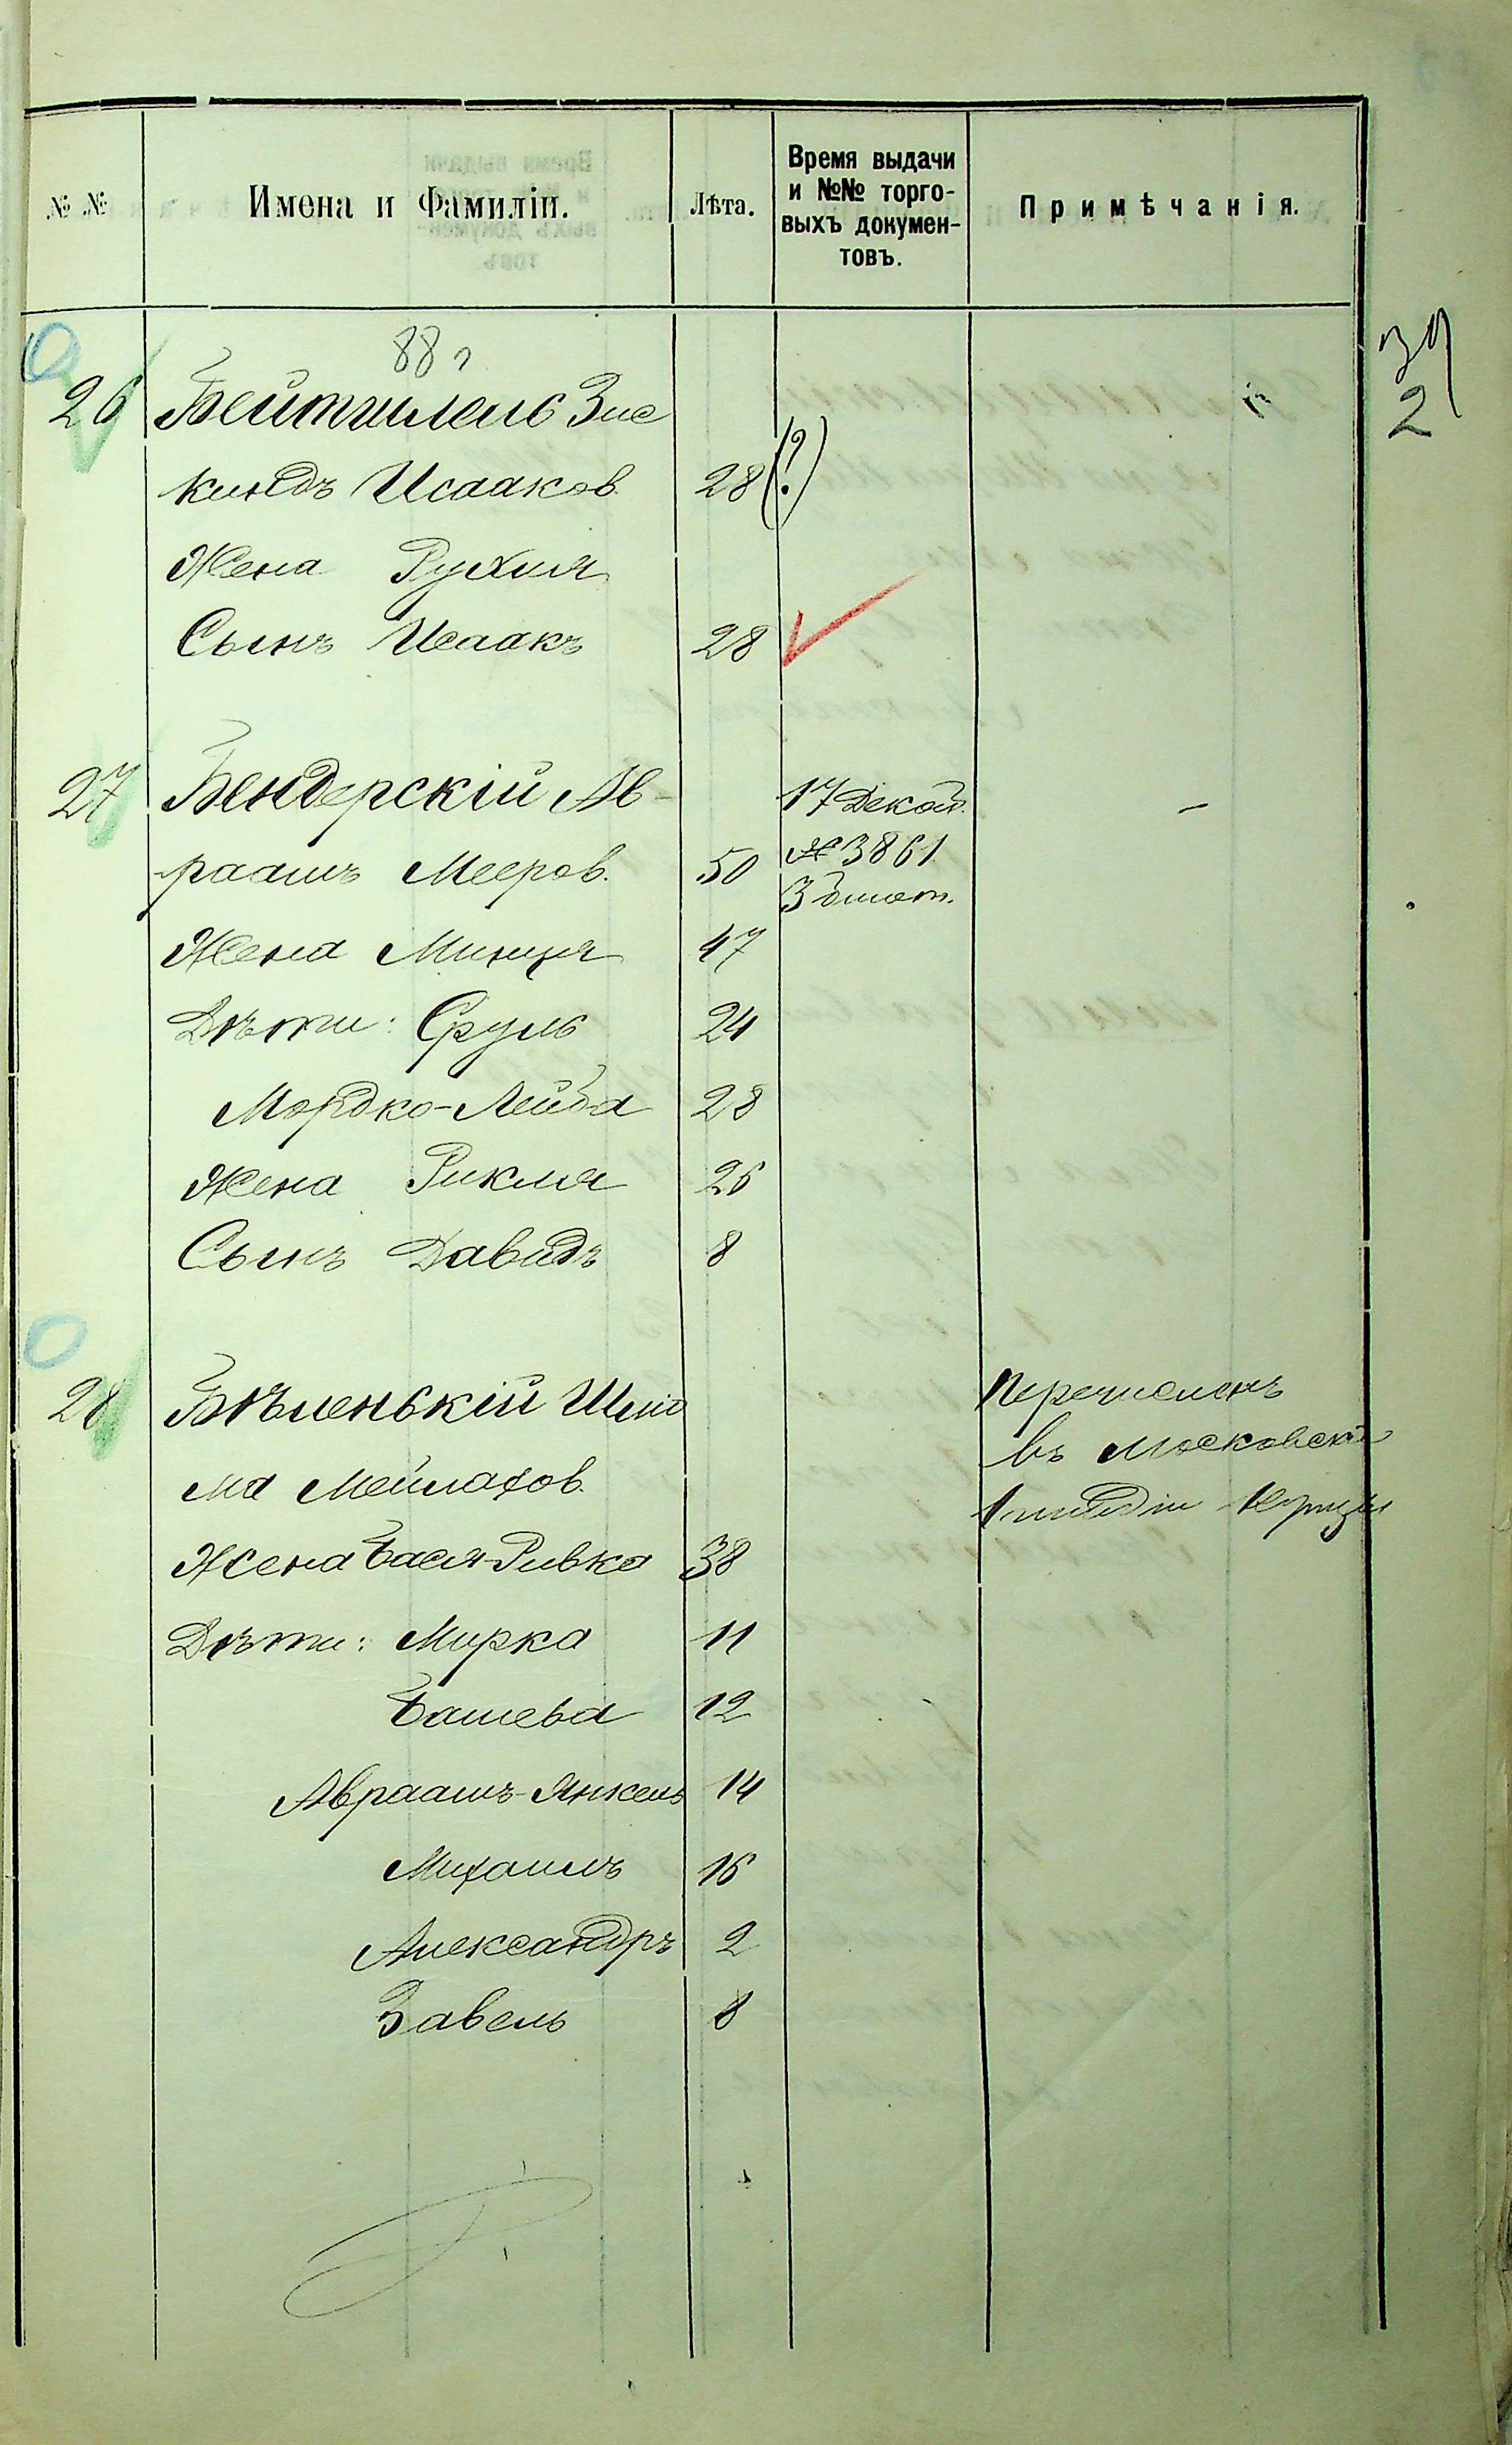 № №
Имена и Фамиліи.
Лѣта.
Время выдачи
и №№ торго-
выхъ докумен-
товъ.
Примѣчанія.
88 г
39
2
26 Бейтчилель Зис
киндъ Исааков. 28 (?)
Жена Рухля
Сынъ Исаакъ 28
27 Бендерскій Ав- 17 Декаб.
раамъ Мееров. 50 № 3861
Жена Минця 47
Дѣти: Сруль 24
Мордко-Лейба 28
Жена Рикля 26
Сынъ Давидъ 8
28 Бѣленькій Шлио Перечисленъ
ма Мейлахов. въ Московскіе
1 гильдіи Купцы
Жена Бася-Ривка 38
Дѣти: Мирка 11
Башева 12
Авраамъ-Янкель 14
Михаилъ 16
Александръ 2
Завель 8